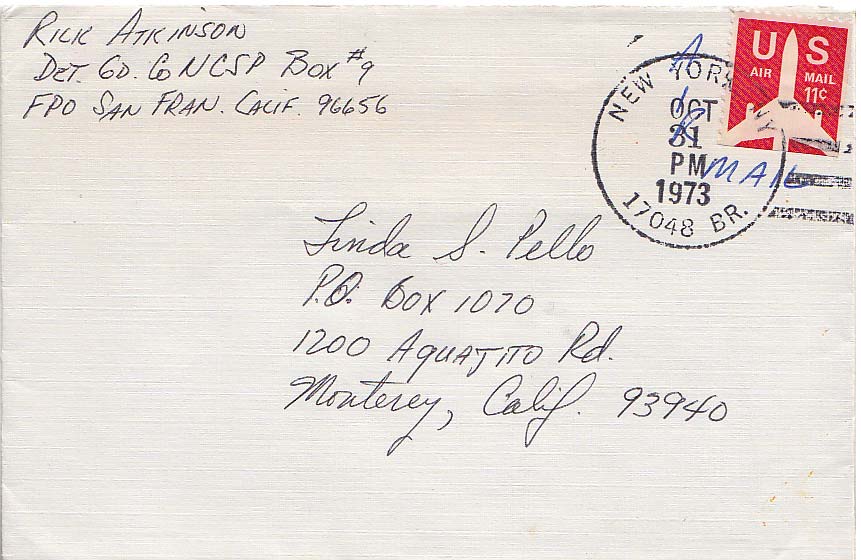 Rick Atkinson
Det. GD. Co NCSP Box #9
FPO San Fran. Calif. 96656
US
AIR MAIL
11¢
NEW YORK, NY
OCT
31
PM
1973
17048 BR.
AIR
MAIL
Linda S. Pello
P.O. Box 1070
1200 Aquajito Rd.
Monterey, Calif. 93940